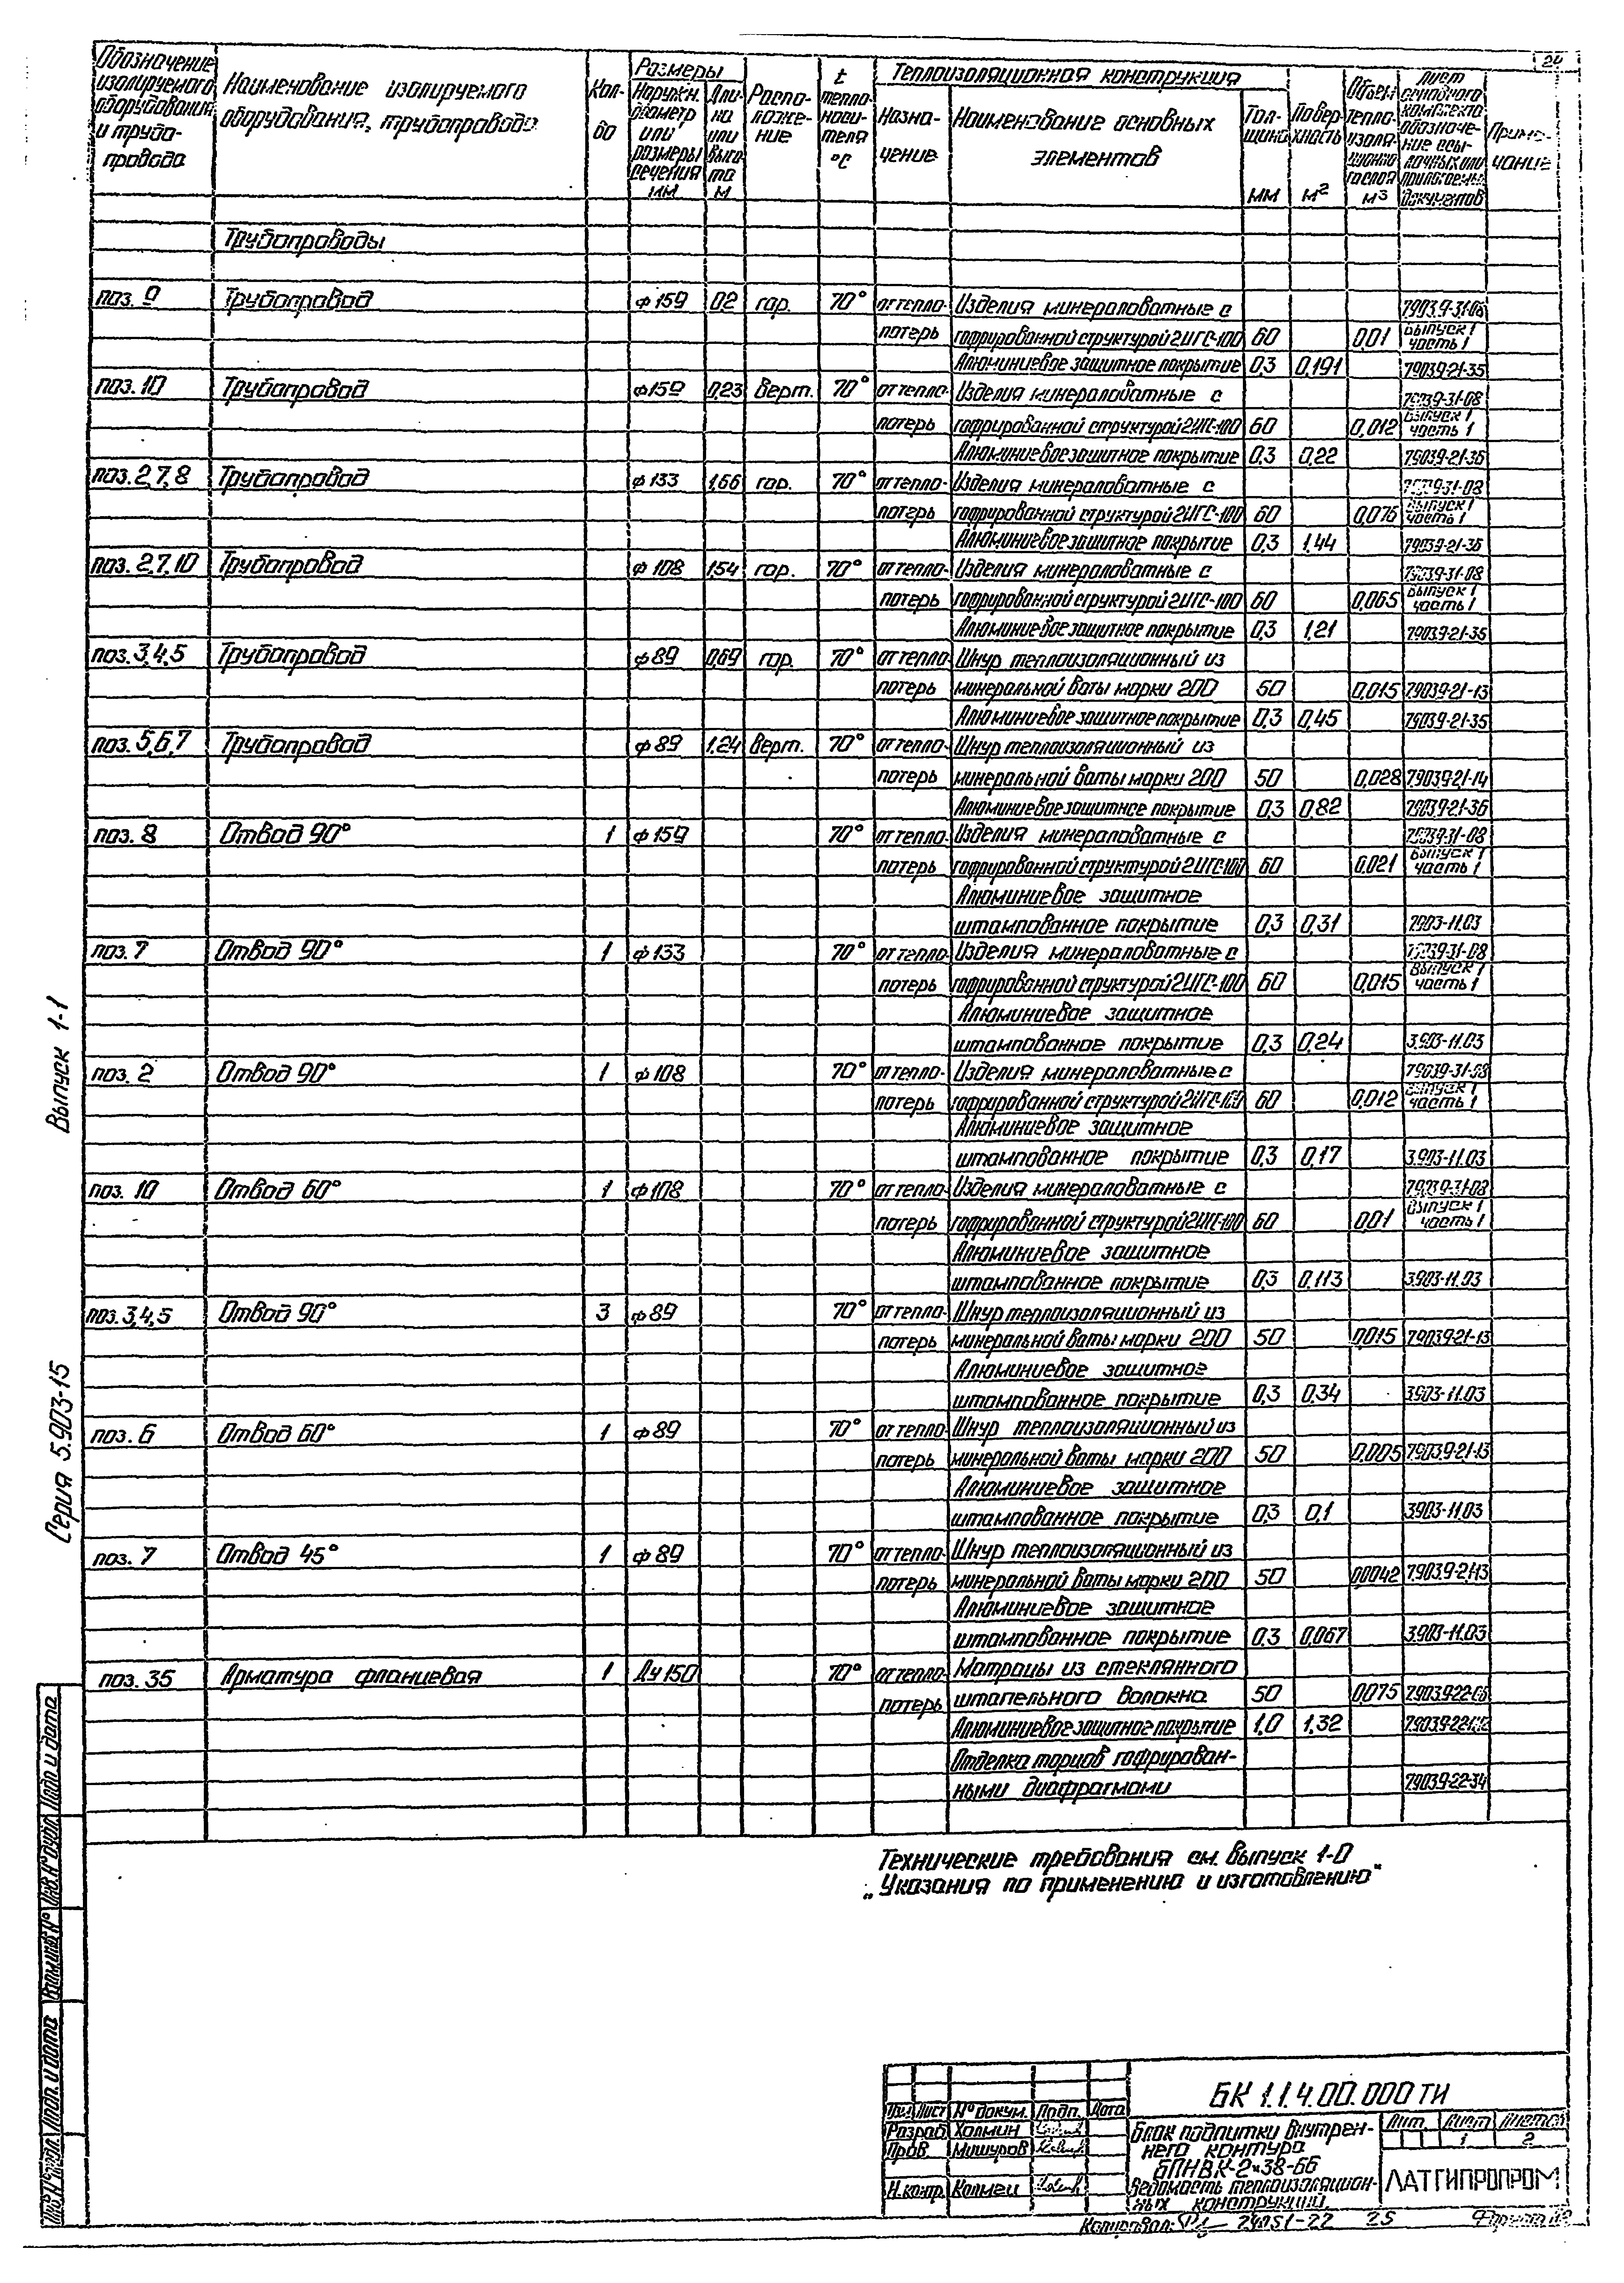 24
Обозначение изолируемого оборудования и трубопровода
Наименование изолируемого оборудования, трубопровода
Кол-во
Размеры
Наружн. диаметр или размеры сечения мм
Длина или высота м
Расположение
t теплоносителя °С
Теплоизоляционная конструкция
Назначение
Наименование основных элементов
Толщина мм
Поверхность м²
Объем теплоизоляционного слоя м³
Лист основного комплекта обозначение ссылочных или прилагаемых документов
Примечание
Трубопроводы
поз. 9 Трубопровод ф159 0,2 гор. 70° от тепло- Изделия минераловатные с 7.903.9-3.1-08
потерь гофрированной структурой 2ИГС-100 60 0,01 выпуск 1 часть 1
Алюминиевое защитное покрытие 0,3 0,191 7.903.9-2.1-35
поз. 10 Трубопровод ф159 0,23 верт. 70° от тепло- Изделия минераловатные с 7.903.9-3.1-08
потерь гофрированной структурой 2ИГС-100 60 0,012 выпуск 1 часть 1
Алюминиевое защитное покрытие 0,3 0,22 7.903.9-2.1-36
поз. 2,7,8 Трубопровод ф133 1,66 гор. 70° от тепло- Изделия минераловатные с 7.903.9-3.1-08
потерь гофрированной структурой 2ИГС-100 60 0,076 выпуск 1 часть 1
Алюминиевое защитное покрытие 0,3 1,44 7.903.9-2.1-36
поз. 2,7,10 Трубопровод ф108 1,54 гор. 70° от тепло- Изделия минераловатные с 7.903.9-3.1-08
потерь гофрированной структурой 2ИГС-100 60 0,065 выпуск 1 часть 1
Алюминиевое защитное покрытие 0,3 1,21 7.903.9-2.1-35
поз. 3,4,5 Трубопровод ф89 0,69 гор. 70° от тепло- Шнур теплоизоляционный из
потерь минеральной ваты марки 200 50 0,015 7.903.9-2.1-13
Алюминиевое защитное покрытие 0,3 0,45 7.903.9-2.1-35
поз. 5,6,7 Трубопровод ф89 1,24 верт. 70° от тепло- Шнур теплоизоляционный из
потерь минеральной ваты марки 200 50 0,028 7.903.9-2.1-14
Алюминиевое защитное покрытие 0,3 0,82 7.903.9-2.1-36
поз. 8 Отвод 90° 1 ф159 70° от тепло- Изделия минераловатные с 7.903.9-3.1-08
потерь гофрированной структурой 2ИГС-100 60 0,021 выпуск 1 часть 1
Алюминиевое защитное
штампованное покрытие 0,3 0,31 7.903-11.03
поз. 7 Отвод 90° 1 ф133 70° от тепло- Изделия минераловатные с 7.903.9-3.1-08
потерь гофрированной структурой 2ИГС-100 60 0,015 выпуск 1 часть 1
Алюминиевое защитное
штампованное покрытие 0,3 0,24 3.903-11.03
поз. 2 Отвод 90° 1 ф108 70° от тепло- Изделия минераловатные с 7.903.9-3.1-08
потерь гофрированной структурой 2ИГС-100 60 0,012 выпуск 1 часть 1
Алюминиевое защитное
штампованное покрытие 0,3 0,17 3.903-11.03
поз. 10 Отвод 60° 1 ф108 70° от тепло- Изделия минераловатные с 7.903.9-3.1-08
потерь гофрированной структурой 2ИГС-100 60 0,01 выпуск 1 часть 1
Алюминиевое защитное
штампованное покрытие 0,3 0,113 3.903-11.03
поз. 3,4,5 Отвод 90° 3 ф89 70° от тепло- Шнур теплоизоляционный из
потерь минеральной ваты марки 200 50 0,015 7.903.9-2.1-13
Алюминиевое защитное
штампованное покрытие 0,3 0,34 3.903-11.03
поз. 6 Отвод 60° 1 ф89 70° от тепло- Шнур теплоизоляционный из
потерь минеральной ваты марки 200 50 0,005 7.903.9-2.1-13
Алюминиевое защитное
штампованное покрытие 0,3 0,1 3.903-11.03
поз. 7 Отвод 45° 1 ф89 70° от тепло- Шнур теплоизоляционный из
потерь минеральной ваты марки 200 50 0,0042 7.903.9-2.1-13
Алюминиевое защитное
штампованное покрытие 0,3 0,067 3.903-11.03
поз. 35 Арматура фланцевая 1 Ду 150 70° от тепло- Матрацы из стеклянного
потерь штапельного волокна 50 0,075
Алюминиевое защитное покрытие 1,0 1,32
Отделка торцов гофрирован-
ными диафрагмами 7.903.9-2.2-34
Технические требования см. выпуск 1-0
„Указания по применению и изготовлению“
Выпуск 1-1
Серия 5.903-15
Подп. и дата
Инв. № дубл.
Взам. инв. №
Подп. и дата
Инв. № подл.
БК 1.1.4.00.000 ТИ
Изм. Лист № докум. Подп. Дата
Разраб. Холмин
Пров. Мишуров
Н. контр.
Блок подпитки внутрен-
него контура
БПНВК-2×38-66
Ведомость теплоизоляцион-
ных конструкций
Лит. Лист Листов
1 2
ЛАТГИПРОПРОМ
Копировал: 24151-22 25 Формат